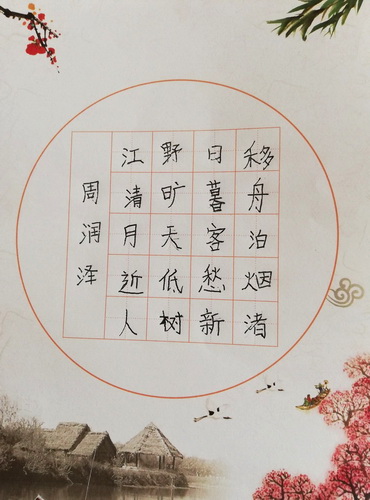 移舟泊烟渚
日暮客愁新
野旷天低树
江清月近人
周润泽